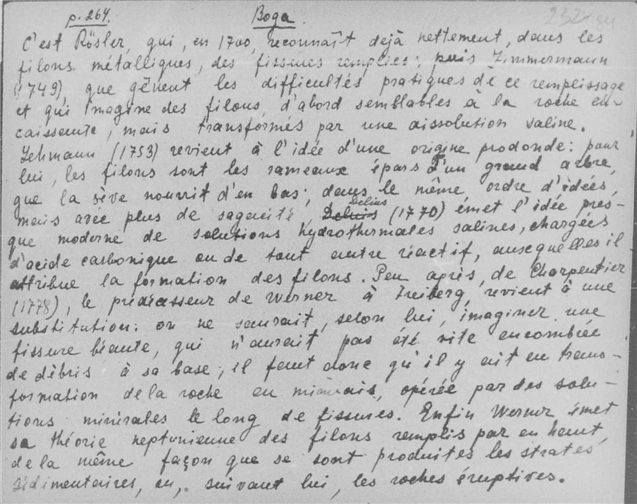 p. 264. Вода. 232
C'est Rösler, qui, en 1700, reconnaît déjà nettement, dans les
filons métalliques, des fissures remplies; puis Zimmermann
(1749), que gênent les difficultés pratiques de ce remplissage
et qui imagine des filons d'abord semblables à la roche en-
caissente, mais transformés par une dissolution saline.
Lehmann (1753) revient à l'idée d'une origine prodonde: pour
lui, les filons sont les rameaux épars d'un grand arbre,
que la sève nourrit d'en bas; dans le même ordre d'idées,
mais avec plus de sagacité, Delius (1770) émet l'idée pres-
que moderne de solutions hydrothermales salines, chargées
d'acide carbonique ou de tout autre réactif, auxquelles il
attribue la formation des filons. Peu après, de Charpentier
(1778), le prédécesseur de Werner à Freiberg, revient à une
substitution: on ne saurait, selon lui, imaginer une
fissure béante, qui n'aurait pas été vite encombrée
de débris à sa base; il faut donc qu'il y ait eu trans-
formation de la roche en minerais, opérée par des solu-
tions minérales le long de fissures. Enfin Werner émet
sa théorie neptunienne des filons remplis par en haut,
de la même façon que se sont produites les strates
sédimentaires, ou, suivant lui, les roches éruptives.